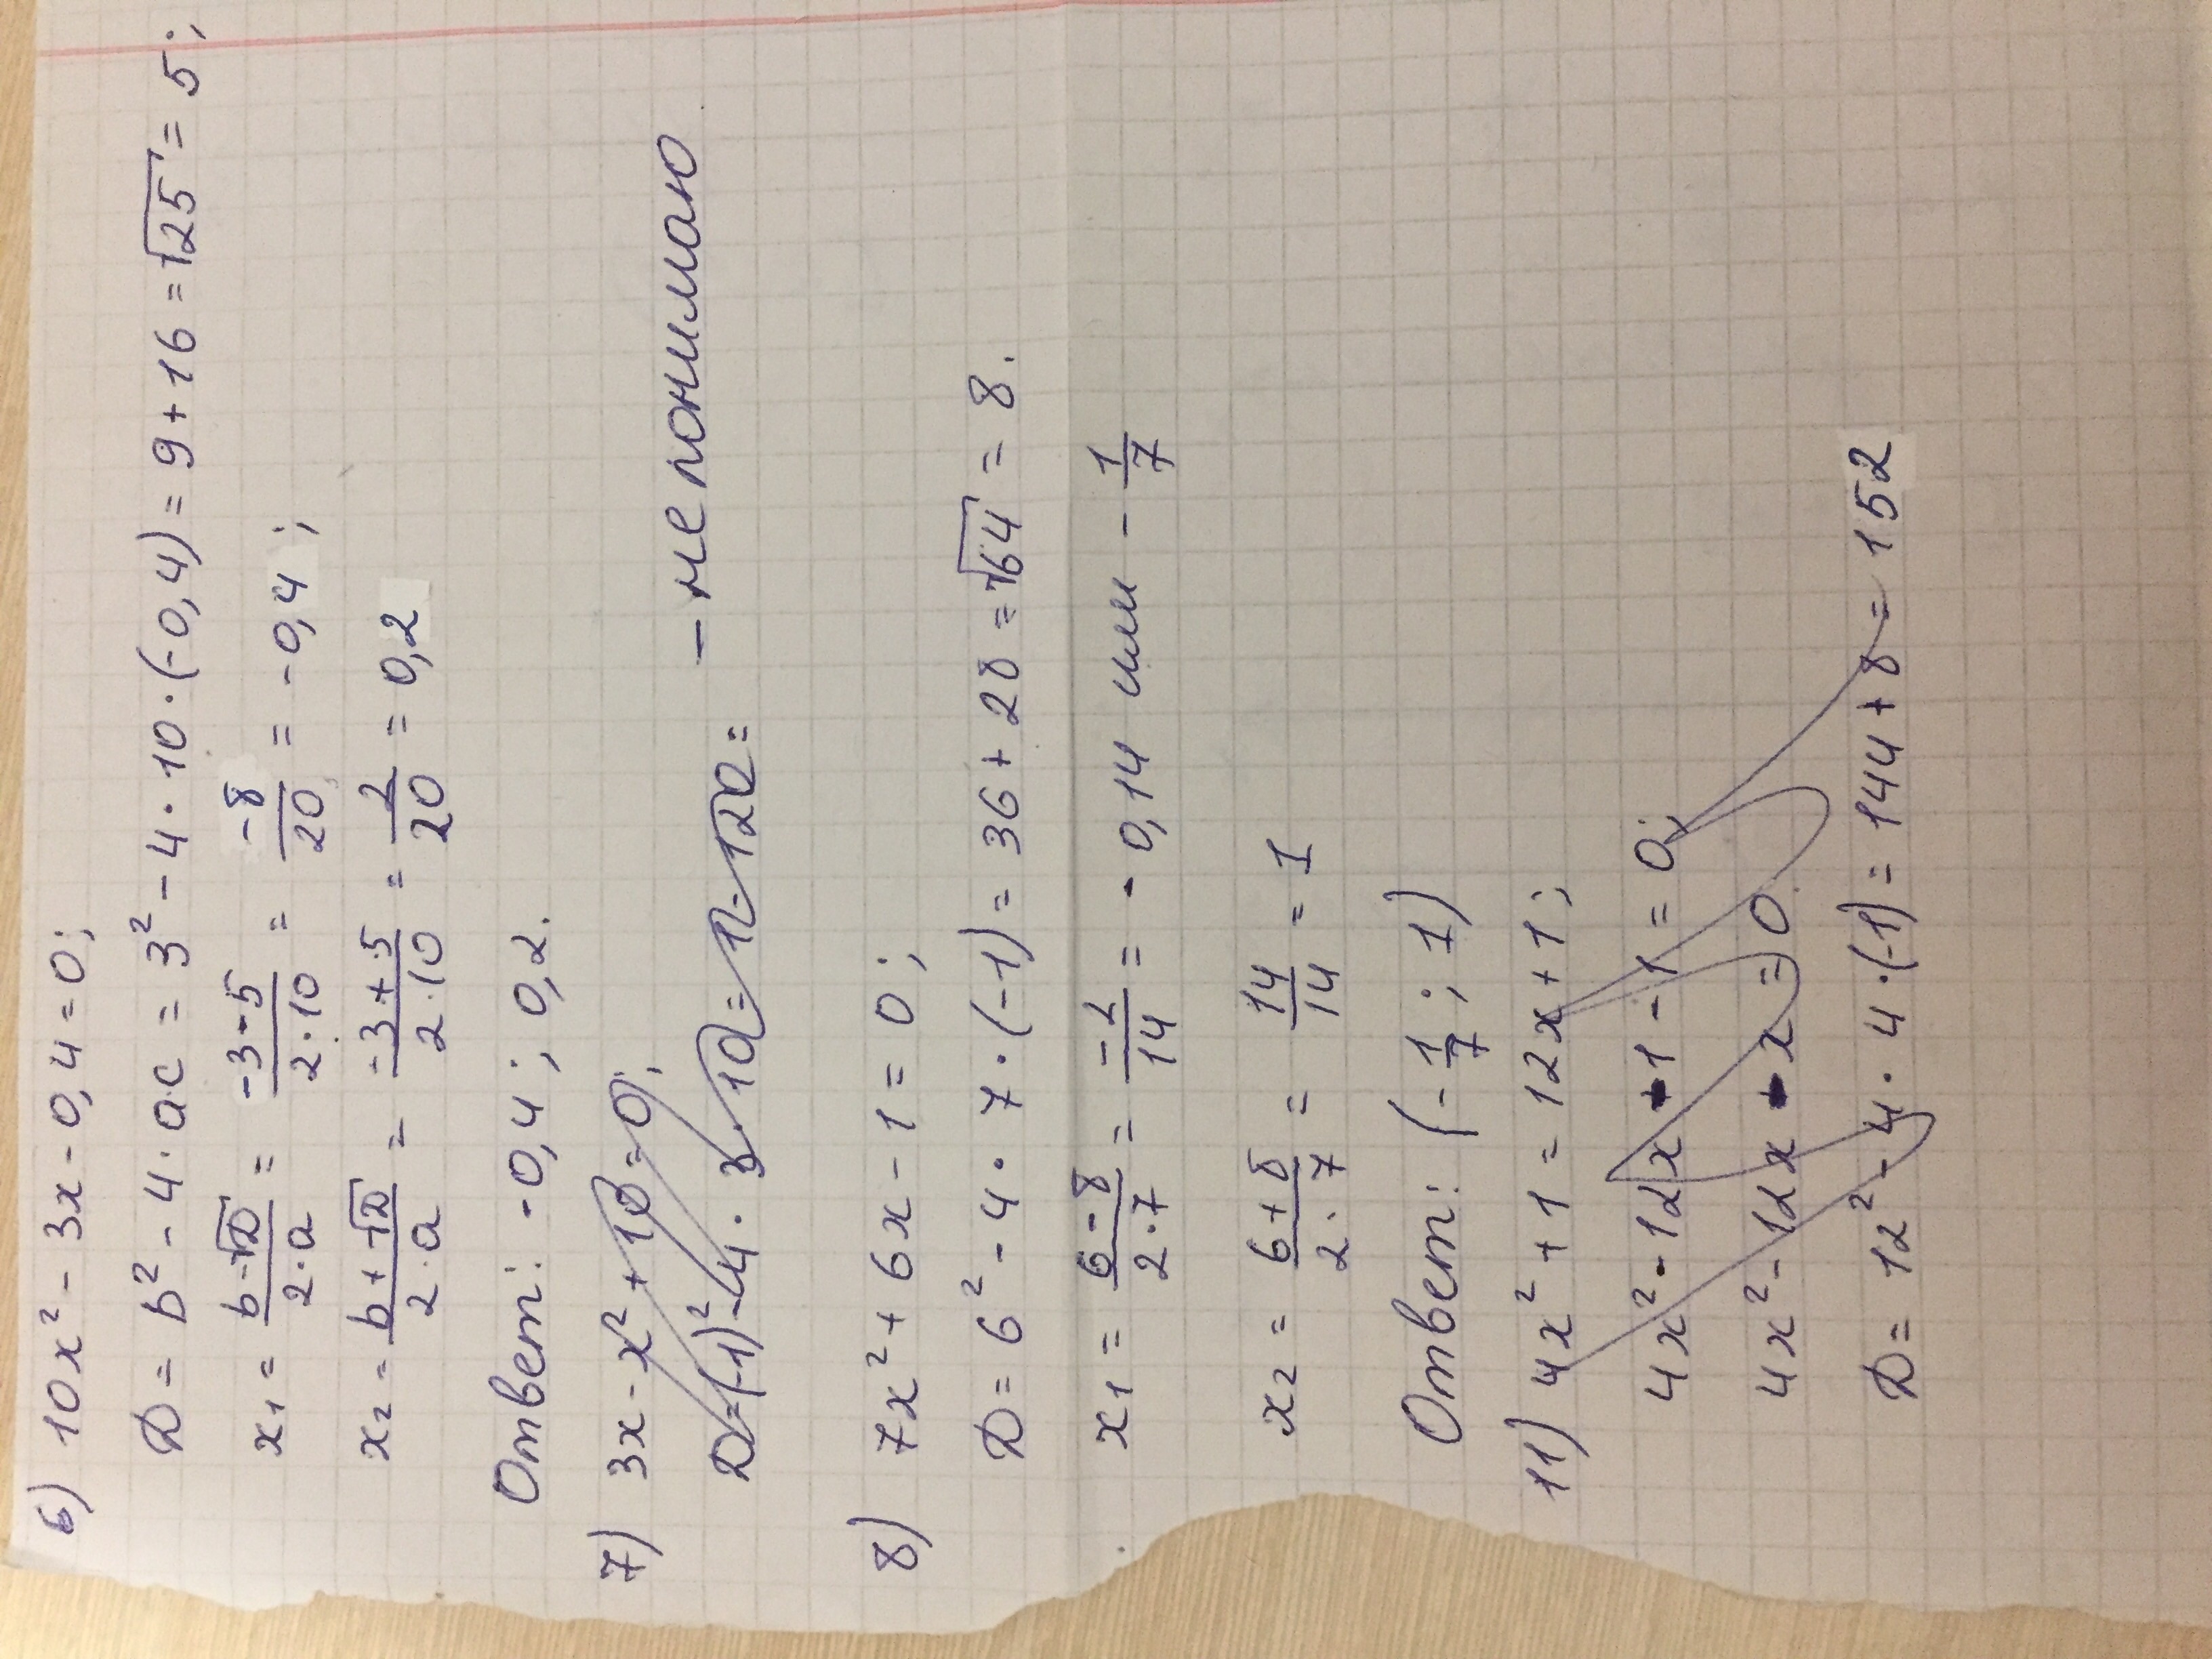 6) 10x² - 3x - 0,4 = 0;
D = b² - 4·ac = 3² - 4·10·(-0,4) = 9 + 16 = √25 = 5;
x₁ = (b-√D)/(2·a) = (-3-5)/(2·10) = -8/20 = -0,4;
x₂ = (b+√D)/(2·a) = (-3+5)/(2·10) = 2/20 = 0,2
Ответ: -0,4; 0,2.
7) 3x - x² + 10 = 0;
D = (-1)² - 4·3·10 = 12 - 120 = - не понимаю
8) 7x² + 6x - 1 = 0;
D = 6² - 4·7·(-1) = 36 + 28 = √64 = 8.
x₁ = (6-8)/(2·7) = -2/14 = -0,14 или -1/7
x₂ = (6+8)/(2·7) = 14/14 = 1
Ответ: (-1/7; 1)
11) 4x² + 1 = 12x + 1;
4x² - 12x + 1 - 1 = 0;
4x² - 12x + x = 0
D = 12² - 4·4·(-1) = 144 + 8 = 152